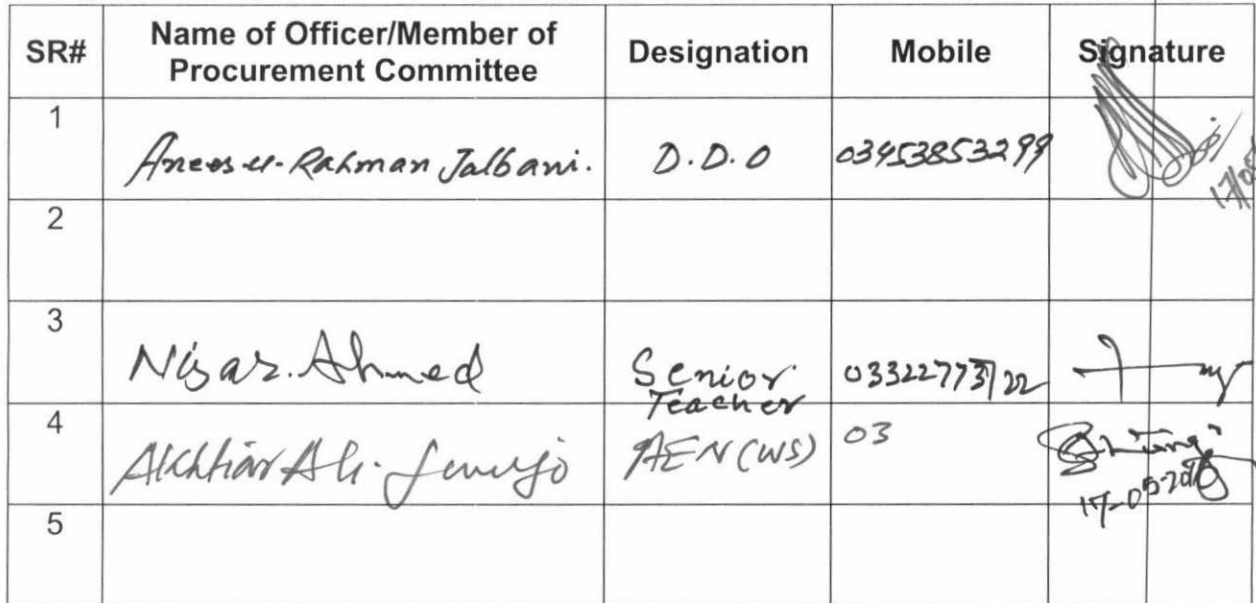 SR# Name of Officer/Member of Procurement Committee Designation Mobile Signature
1 Anees-u-Rahman Jalbani. D.D.O 03453853299
17/05
2
3 Nisar Ahmed Senior Teacher 03322773122
4 Akhtiar Ali Junejo AEN (WS) 03
17-05-20
5